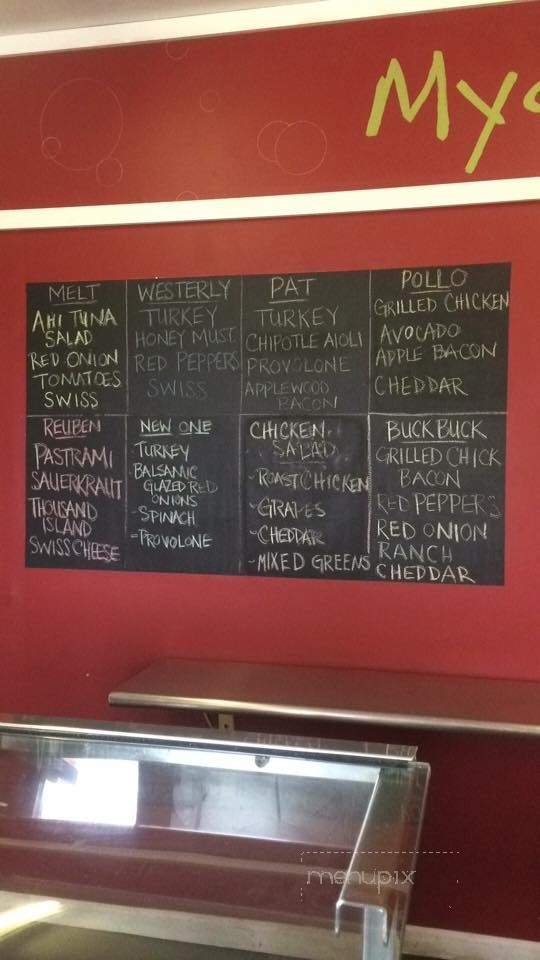 My
MELT
AHI TUNA
SALAD
RED ONION
TOMATOES
SWISS
WESTERLY
TURKEY
HONEY MUST.
RED PEPPERS
SWISS
PAT
TURKEY
CHIPOTLE AIOLI
PROVOLONE
APPLEWOOD
BACON
POLLO
GRILLED CHICKEN
AVOCADO
APPLE BACON
CHEDDAR
REUBEN
PASTRAMI
SAUERKRAUT
THOUSAND
ISLAND
SWISS CHEESE
NEW ONE
-TURKEY
-BALSAMIC
GLAZED RED
ONIONS
-SPINACH
-PROVOLONE
CHICKEN
SALAD
-ROAST CHICKEN
-GRAPES
-CHEDDAR
-MIXED GREENS
BUCK BUCK
GRILLED CHICK
BACON
RED PEPPERS
RED ONION
RANCH
CHEDDAR
menupix